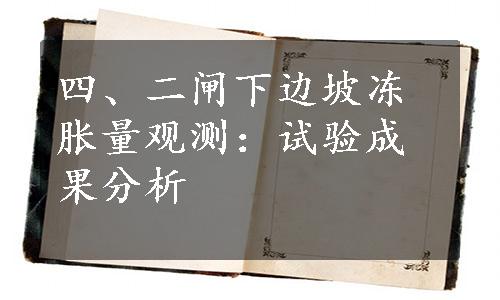 四、二闸下边坡冻
胀量观测：试验成
果分析